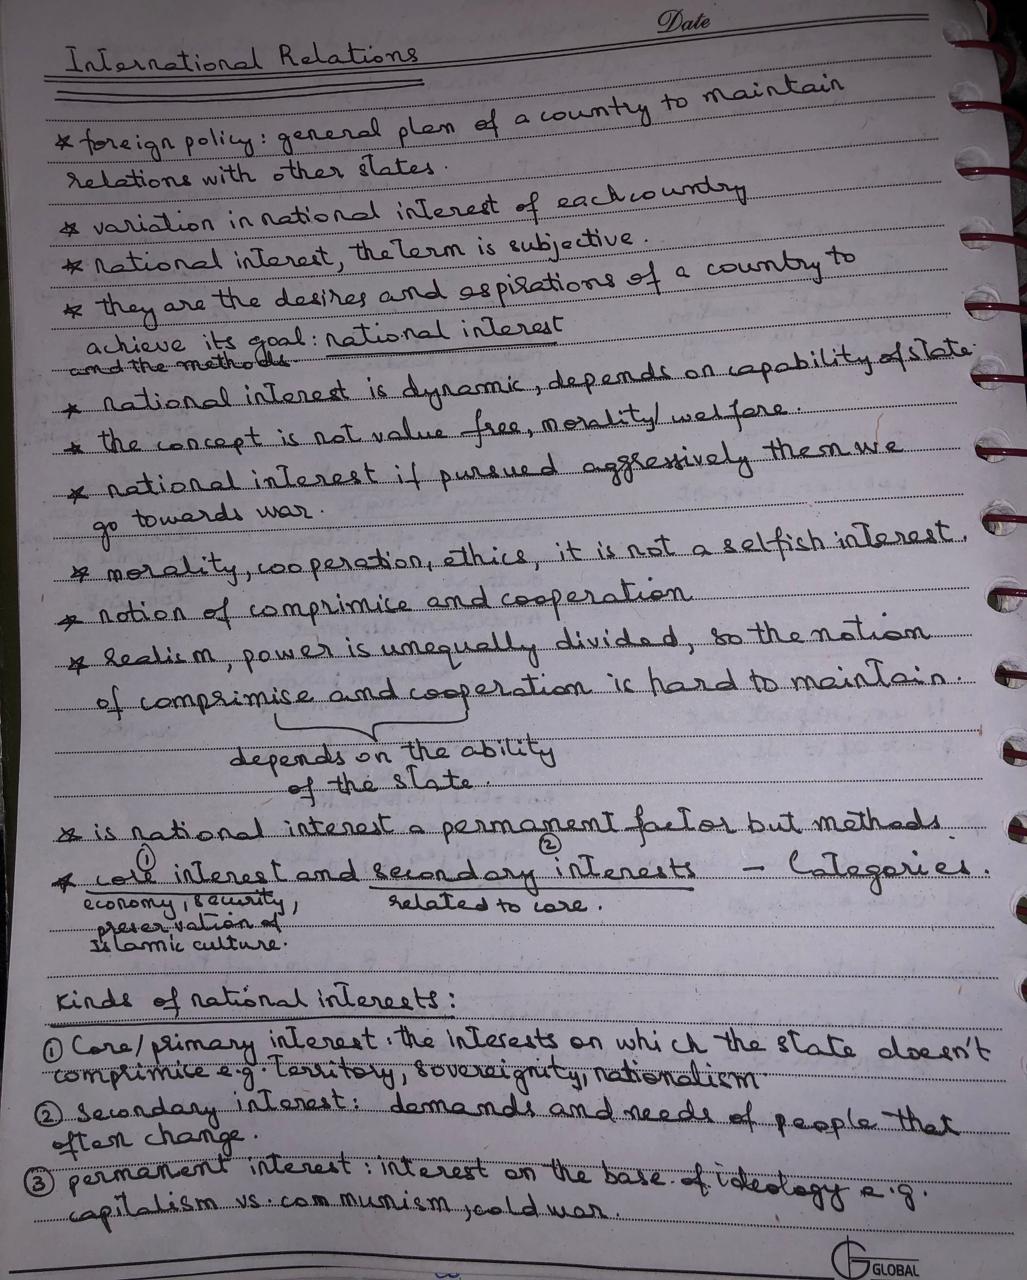 Date
International Relations
* foreign policy: general plan of a country to maintain
relations with other states.
* variation in national interest of each country
* national interest, the term is subjective.
* they are the desires and aspirations of a country to
achieve its goal: national interest
and the methods.
* national interest is dynamic, depends on capability of state.
* the concept is not value free, morality/welfare.
* national interest if pursued aggressively then we
go towards war.
* morality, cooperation, ethics, it is not a selfish interest.
* notion of comprimice and cooperation
* realism, power is unequally divided, so the notion
of comprimise and cooperation is hard to maintain.
depends on the ability
of the state.
* is national interest a permanent factor but methods.
① ②
* core interest and secondary interests - Categories.
economy, security, related to core.
preservation of
islamic culture.
Kinds of national interests:
① Core/primary interest: the interests on which the state doesn't
comprimice e.g. territory, sovereignity, nationalism
② Secondary interest: demands and needs of people that
often change.
③ permanent interest: interest on the base of ideology e.g.
capitalism vs. communism, cold war.
GLOBAL